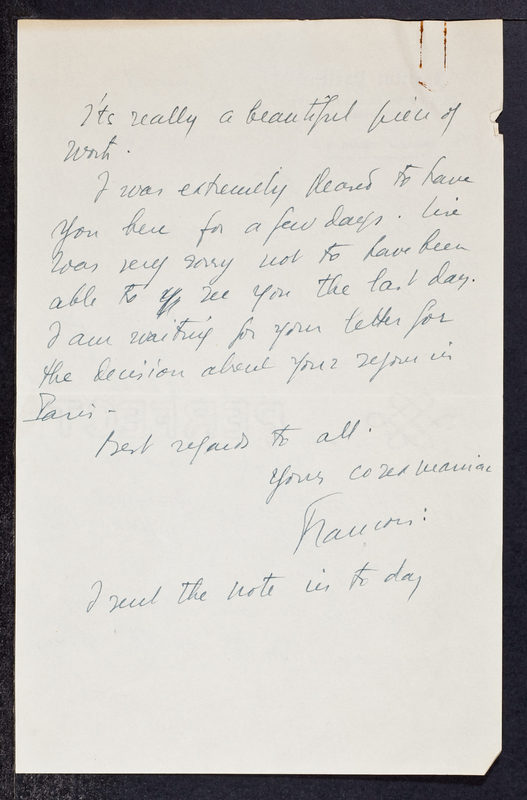 It's really a beautiful piece of
work.
I was extremely pleased to have
you here for a few days. Lise
was very sorry not to have been
able to see you the last day.
I am waiting for your letter for
the decision about your sejour in
Paris -
Best regards to all.
Yours
Francois.
I sent the note in to day